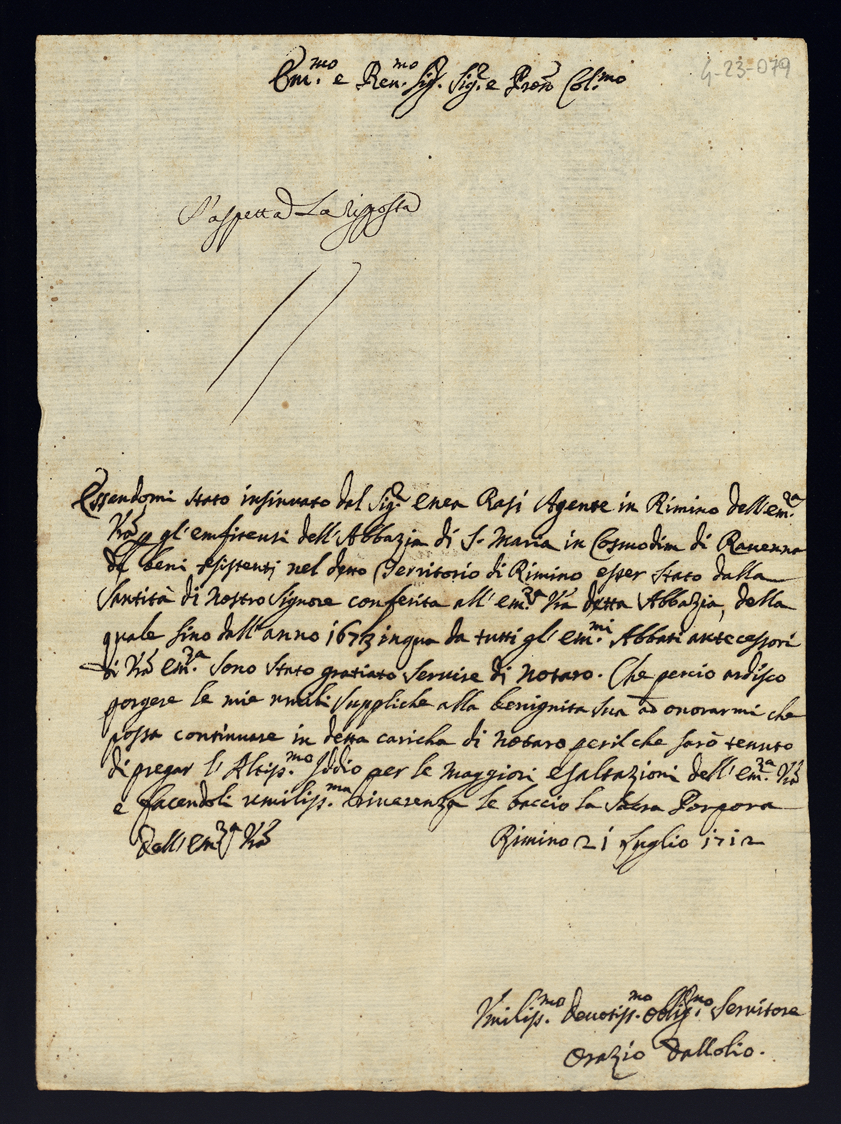 4-23-079
Em.mo e Reu.mo Sig.r Sig.r e Pron Col.mo
S'aspetta La risposta
Essendomi stato insinuato dal Sig.r Enea Rasi Agente in Rimino dell'em.za
V.ra p gl'emfiteusi dell'Abbazia di S. Maria in Cosmodim di Rauenna
de beni esistenti nel detto Territorio di Rimino esser stato dalla
Santità di Nostro Signore conferita all'em.za V.ra detta Abbazia, della
quale sino dall'anno 1673 inqua da tutti gl'em.mi Abbati antecessori
di V.ra em.za sono stato gratiato seruire di Notaro. Che percio ardisco
porgere le mie umili suppliche alla benignita sua ad onorarmi che
possa continuare in detta caricha di Notaro peril che sarò tenuto
di pregar l'Altiss.mo Iddio per le maggiori esaltazioni dell'em.za V.ra
e facendoli umiliss.ma riuerenza le baccio la Sacra Porpora
Dell'em.za V.ra
Rimino 21 Luglio 1712
Vmiliss.mo deuotiss.mo oblig.mo Seruitore
Orazio Dallolio.